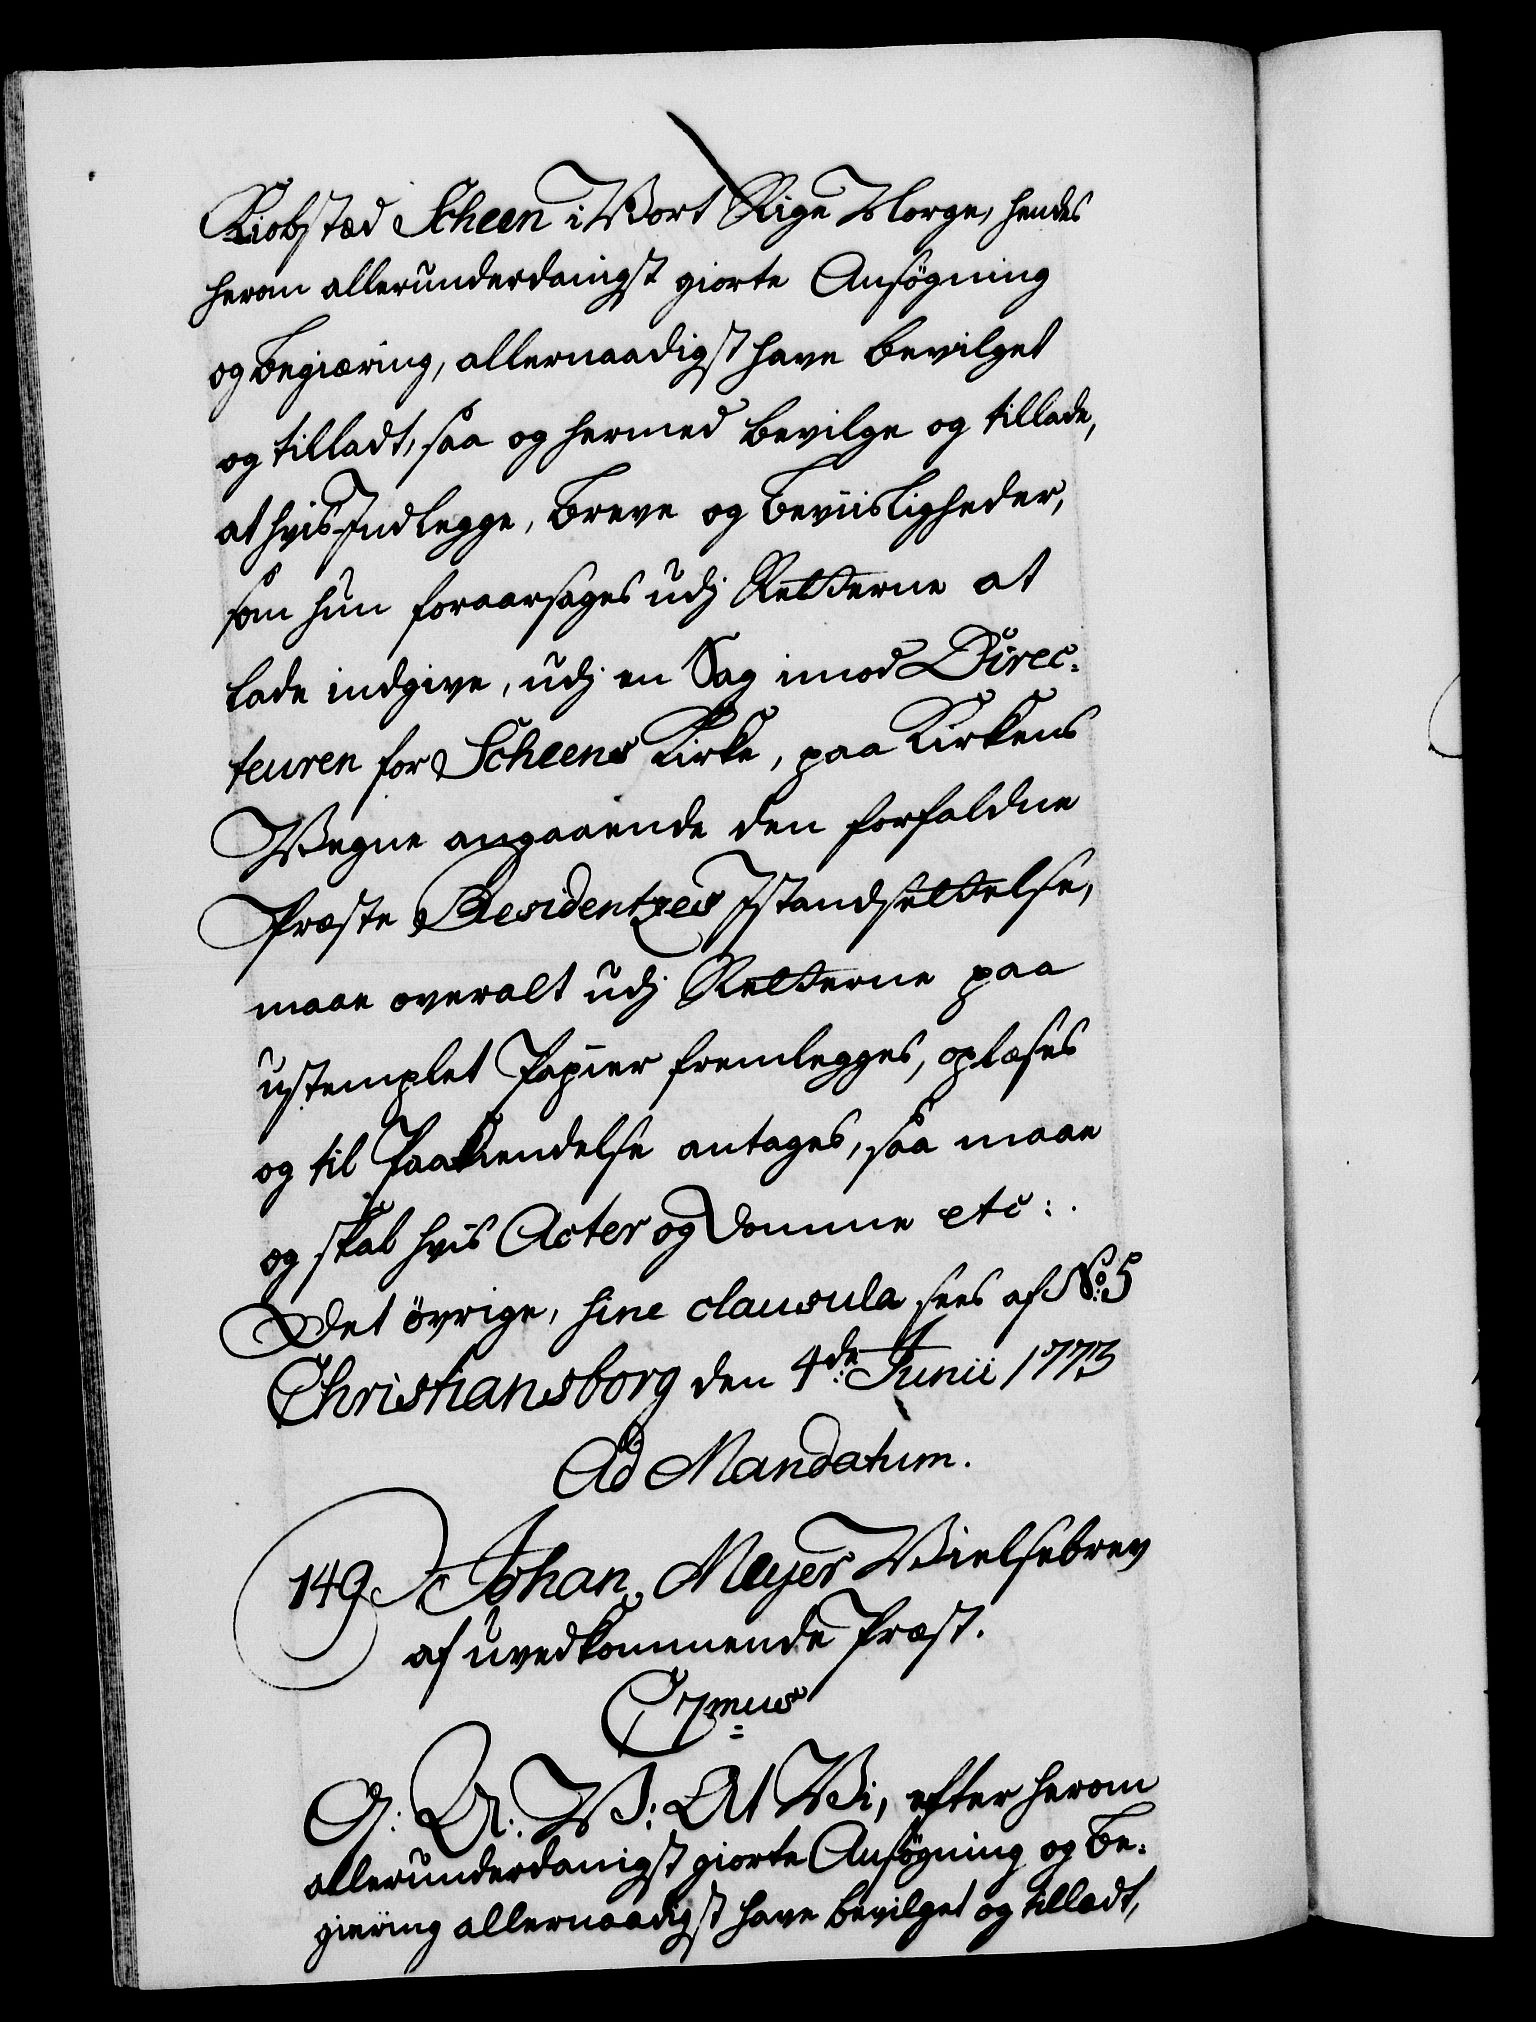 Kiøbstæd Scheen i Vort Rige Norge, hendes
herom allerunderdanigst giorte Ansøgning
og Begiæring, allernaadigst have bevilget
og tilladt, saa og hermed bevilge og tillade,
at hvis Indlegge, Breve og Beviisligheder,
som hun foraarsages udj Retterne at
lade indgive, udj en Sag imod Direc-
teuren for Scheens Kirke, paa Kirkens
Vegne angaaende den forfaldne
Præste Residentzes Istandsettelse,
maae overalt udj Retterne paa
ustemplet Papiir fremlegges, oplæses
og til Paakiendelse antages, saa maae
og skal hvis Acter og Domme etc:.
Det övrige, sine clausula sees af No. 5
Christiansborg den 4de Junii 1773
Ad Mandatum.
149 Johan Meyer Vielsebrev
af uvedkommende Præst.
C 7mus
G: A: V: At Vi, efter herom
allerunderdanigst giorte Ansøgning og Be-
giering allernaadigst have bevilget og tilladt,